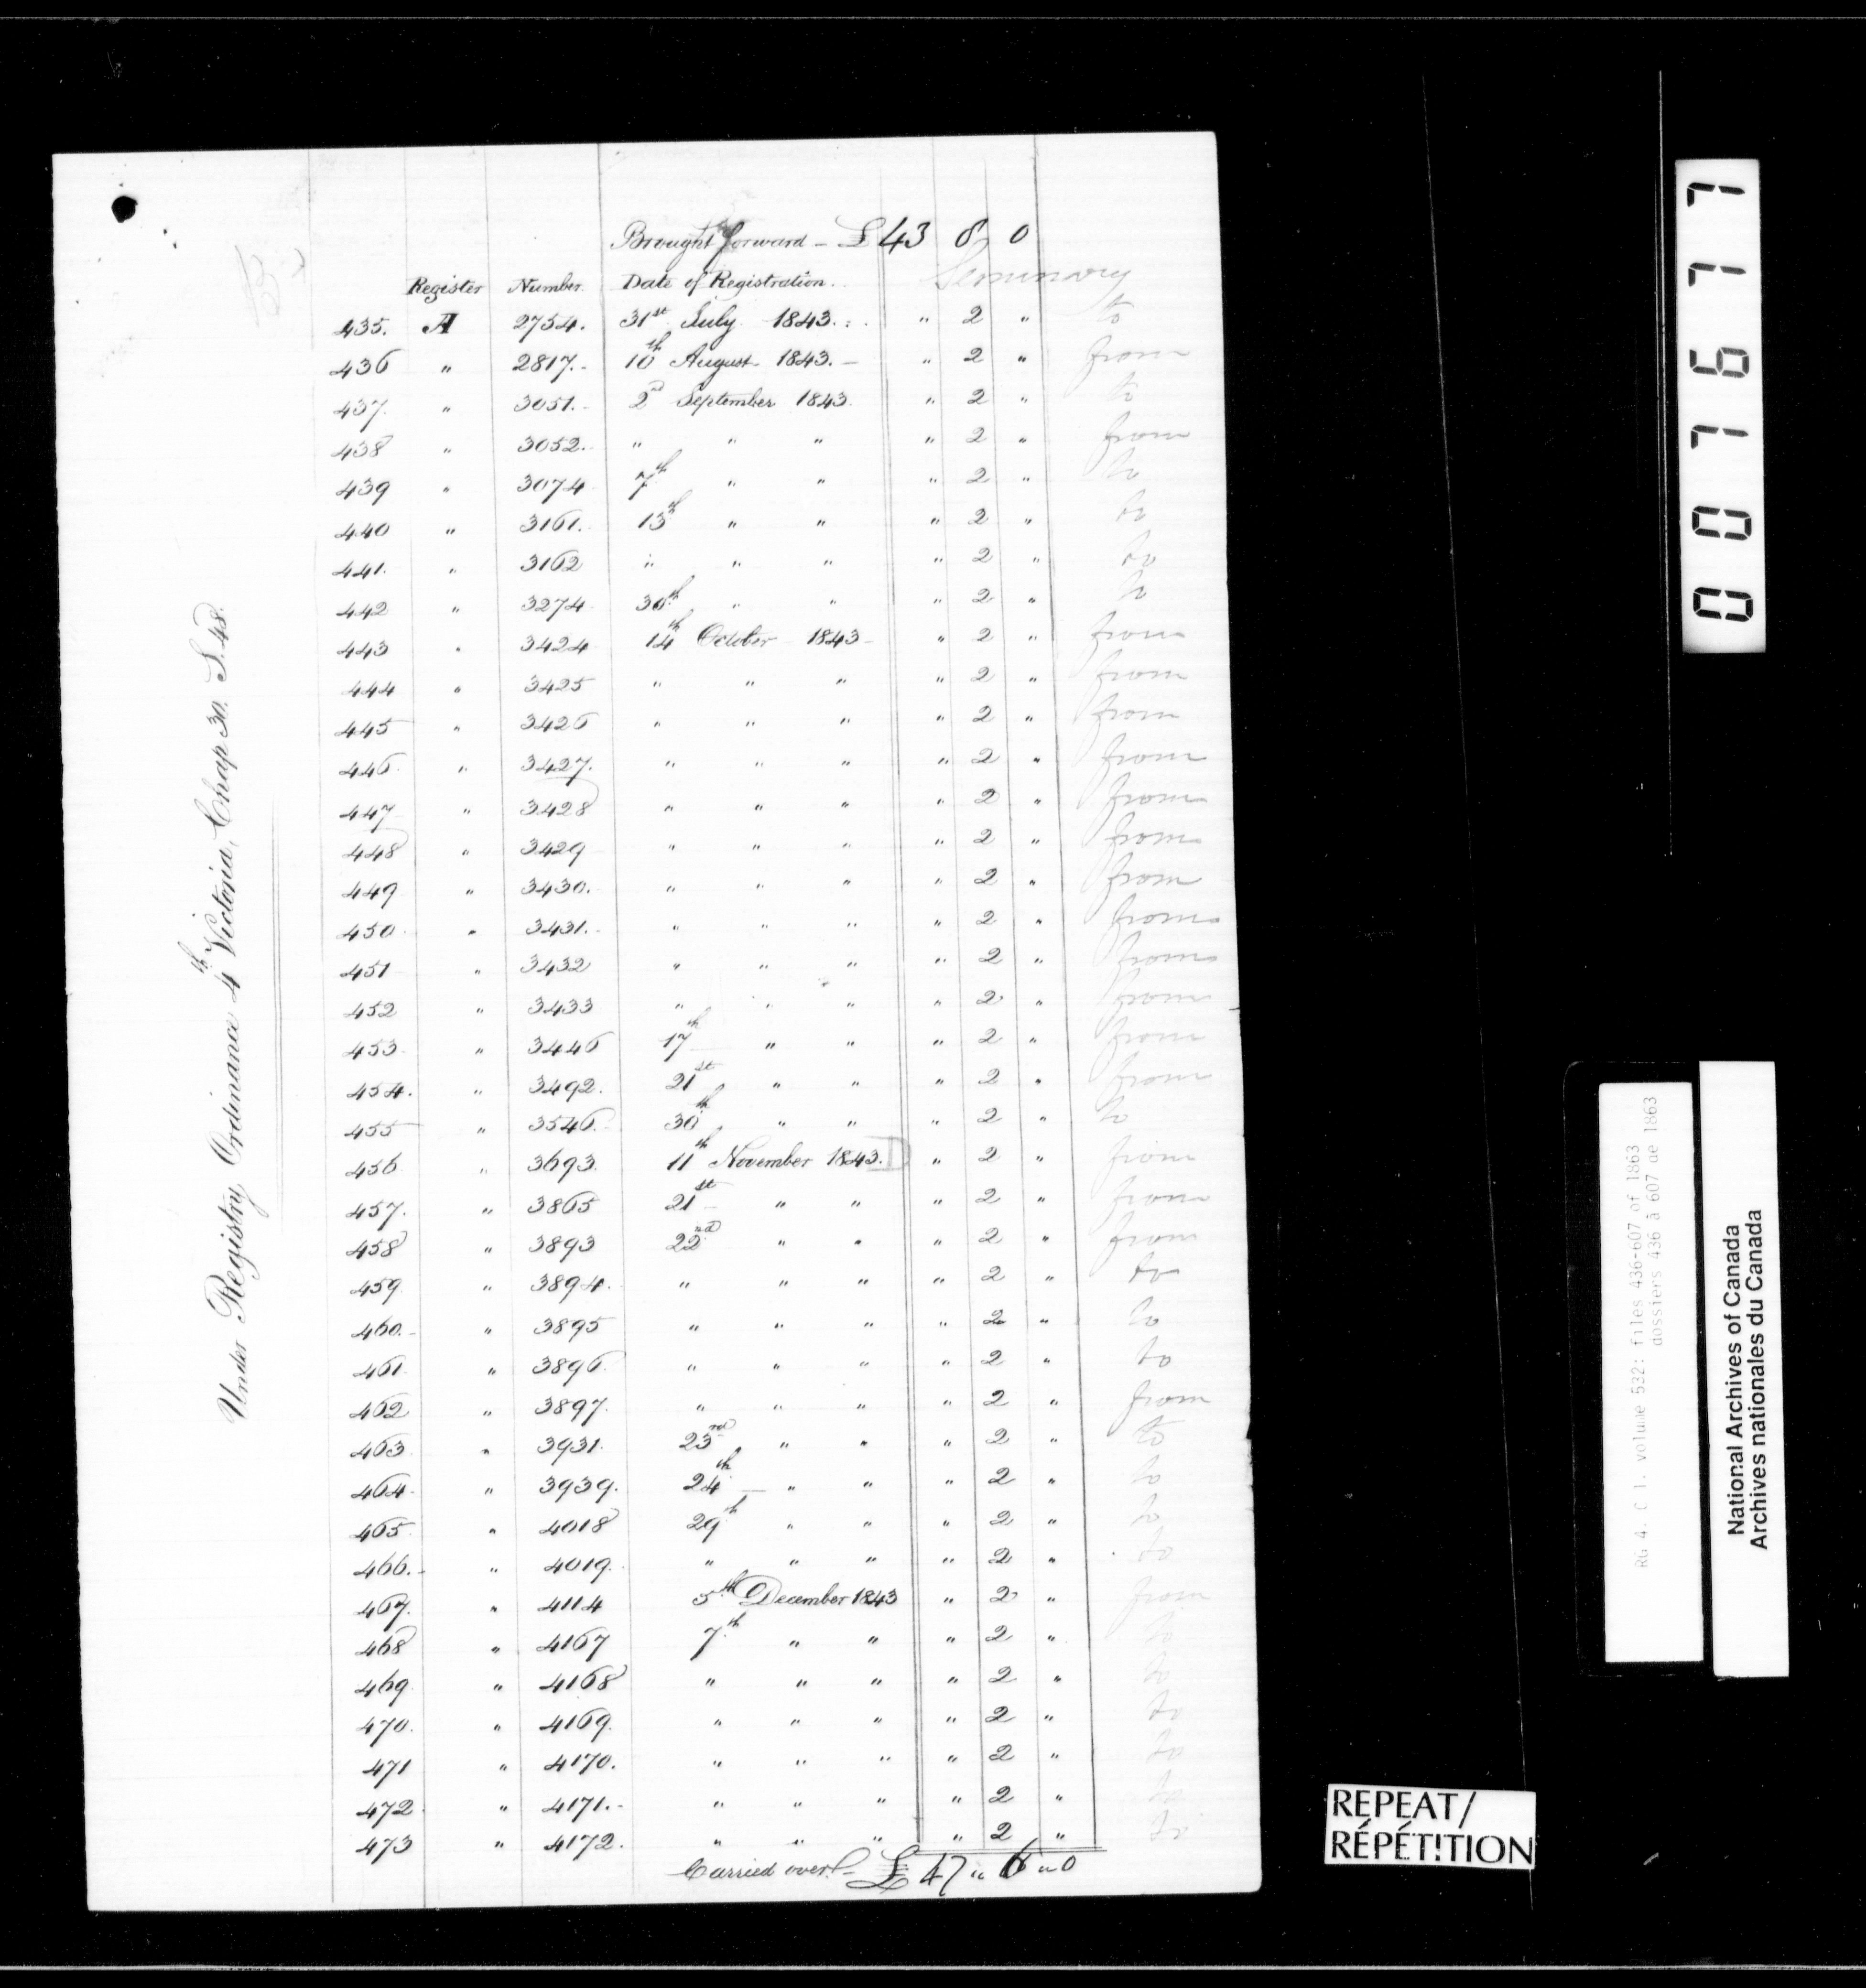 Brought forward - £ 43 8 0
Register Number. Date of Registration. Seminary
435. A 2754. 31st July 1843. " 2 " to
436 " 2817. 10th August 1843. " 2 " from
437. " 3051. 2nd September 1843. " 2 " to
438 " 3052. " " " " 2 " from
439 " 3074 7th " " " 2 " to
440 " 3161. 13th " " " 2 " to
441. " 3162 " " " " 2 " to
442 " 3274 30th " " " 2 " to
443 " 3424 14th October 1843 " 2 " from
444 " 3425 " " " " 2 " from
445 " 3426 " " " " 2 " from
446 " 3427. " " " " 2 " from
447 " 3428 " " " " 2 " from
448 " 3429 " " " " 2 " from
449 " 3430. " " " " 2 " from
450 " 3431. " " " " 2 " from
451 " 3432 " " " " 2 " from
452 " 3433 " " " " 2 " from
453 " 3446 17th " " " 2 " from
454. " 3492. 21st " " " 2 " from
455 " 3546. 30th " " " 2 " to
456 " 3693. 11th November 1843. " 2 " from
457. " 3865 21st " " " 2 " from
458 " 3893 22nd " " " 2 " from
459 " 3894. " " " " 2 " to
460. " 3895 " " " " 2 " to
461 " 3896 " " " " 2 " to
462 " 3897. " " " " 2 " from
463 " 3931. 23rd " " " 2 " to
464 " 3939. 24th " " " 2 " to
465 " 4018 29th " " " 2 " to
466. " 4019. " " " " 2 " to
467. " 4114 5th December 1843 " 2 " from
468 " 4167 7th " " " 2 " to
469 " 4168 " " " " 2 " to
470. " 4169. " " " " 2 " to
471 " 4170. " " " " 2 " to
472 " 4171. " " " " 2 " to
473 " 4172. " " " " 2 " to
Carried over - £ 47 " 6 " 0
Under Registry Ordinance 4th Victoria, Chap 30. S. 48.
007677
RG 4. C 1. volume 532: files 436-607 of 1863
dossiers 436 à 607 de 1863
National Archives of Canada
Archives nationales du Canada
REPEAT/
RÉPÉTITION